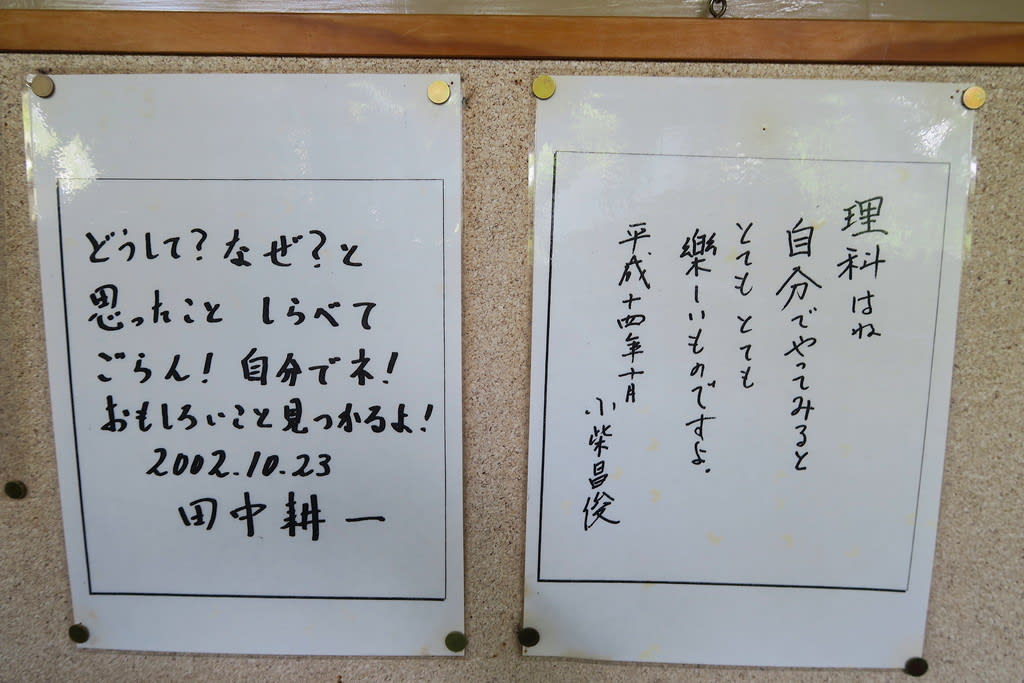 どうして?なぜ?と
思ったこと しらべて
ごらん! 自分でネ!
おもしろいこと見つかるよ!
2002.10.23
田中耕一
理科はね
自分でやってみると
とてもとても
樂しいものですよ.
平成十四年十月
小柴昌俊